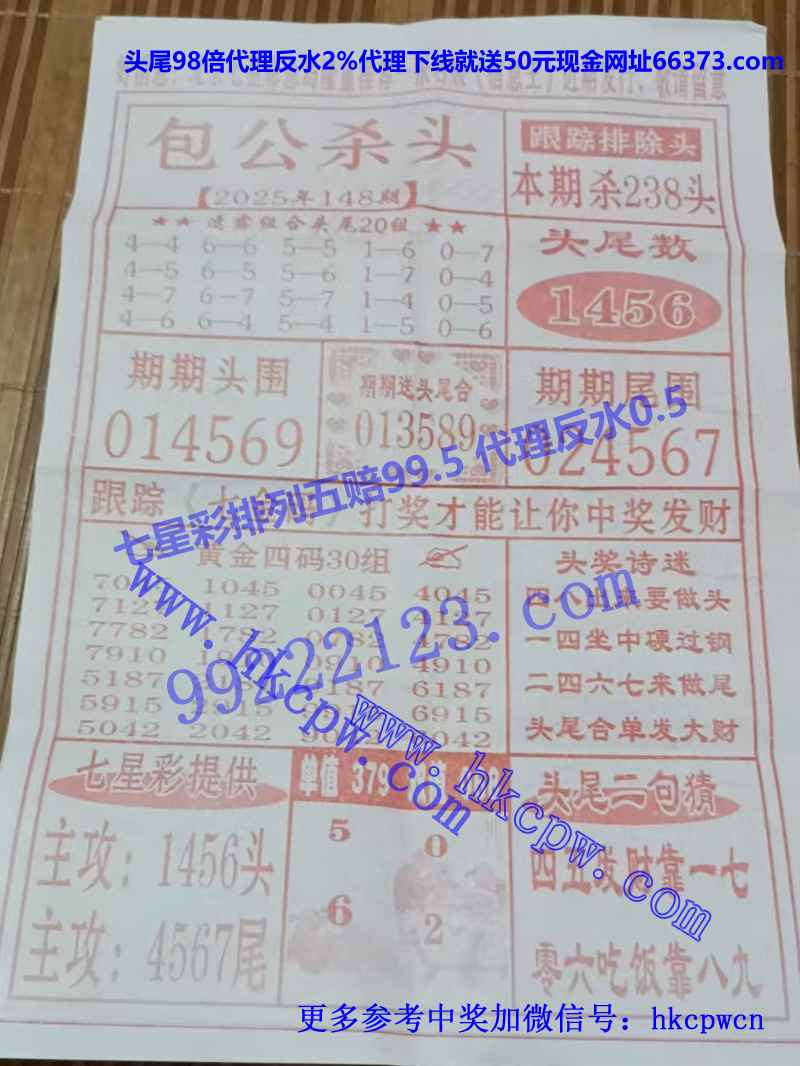 头尾98倍代理反水2%代理下线就送50元现金网址66373.com
包公杀头
【2025年148期】
跟踪排除头
本期杀238头
★★ 透露组合头尾20组 ★★
4—4 6—6 5—5 1—6 0—7
4—5 6—5 5—6 1—7 0—4
4—7 6—7 5—7 1—4 0—5
4—6 6—4 5—4 1—5 0—6
头尾数
1456
期期头围
014569
期期送头尾合
013589
期期尾围
024567
七星彩排列五赔99.5 代理反水0.5
跟踪
打奖才能让你中奖发财
黄金四码30组
1045 0045 4045
1127 0127 4127
7782 1782
7910 4910
5187 6187
5915 6915
5042 2042
头奖诗迷
要做头
一四坐中硬过钢
二四六七来做尾
头尾合单发大财
99222123.com
www.hkcpw.com
www.hkcpw.com
七星彩提供
主攻：1456头
主攻：4567尾
单值 379
5 0
6 2
头尾二句猜
四五发财靠一七
零六吃饭靠八九
更多参考中奖加微信号：hkcpwcn